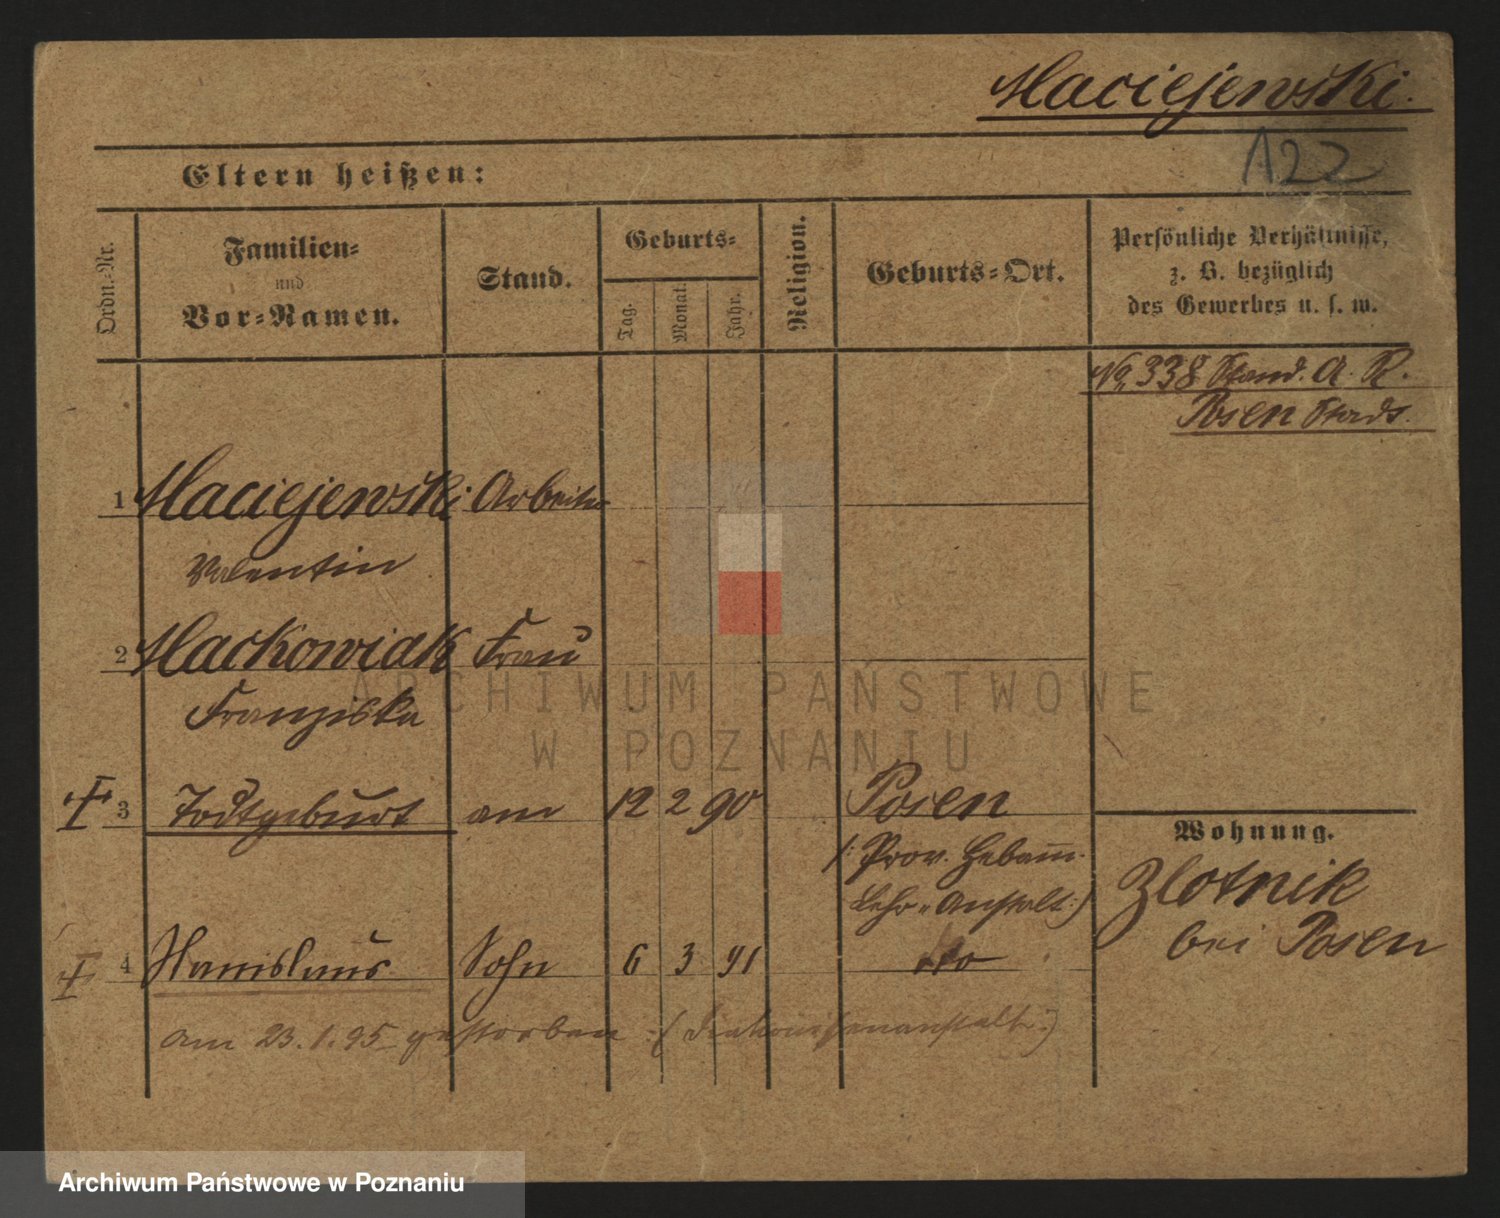 Maciejewski.
A22
Eltern heißen:
Ordn.-Nr.
Familien-
und
Vor-Namen.
Stand.
Geburts-
Tag.
Monat.
Jahr.
Religion.
Geburts-Ort.
Persönliche Verhältnisse,
z. B. bezüglich
des Gewerbes u. s. w.
No. 338 Stand. A. R.
Posen Stadt.
1 Maciejewski Arbeiter
Valentin
2 Mackowiak Frau
Franziska
ARCHIWUM PAŃSTWOWE
W POZNANIU
3 Todtgeburt am 12 2 90 Posen
/: Prov. Hebam.
Lehr-Anstalt :/
Wohnung.
Zlotnik
bei Posen
4 Stanislaus Sohn 6 3 91 dto
am 23.1.95 gestorben :( Diakonissenanstalt :)
Archiwum Państwowe w Poznaniu